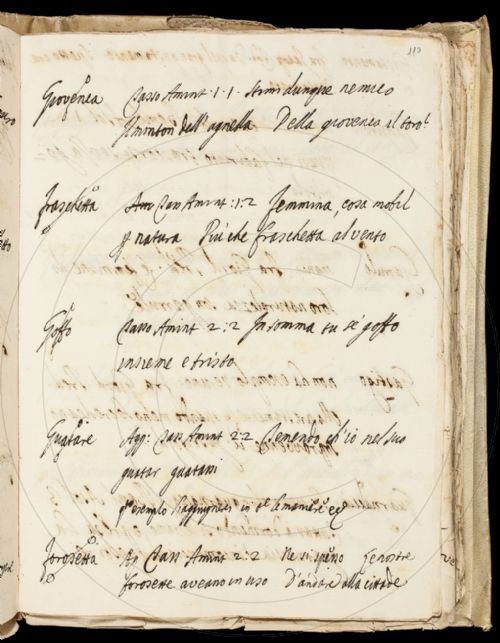 113
Giovenca Tasso Amint: 1. 1. stimi dunque nemico
Il monton dell'agnella Della giovenca il toro?
fraschetta Am Tass Amint: 1: 2 Femmina, cosa mobil
p natura Più che fraschetta al vento
Goffo Tasso Amint 2: 2 In somma tu sé goffo
insieme e tristo
Guatare Agg: Tass Amint 2: 2. Tenendo ch'io nel suo
guatar guatassi
esempio s'aggiugnesi in
forosetta Ag Tass Amint 2: 2 Ne si speño le nostre
forosette aveano in uso D'andare alla cittade